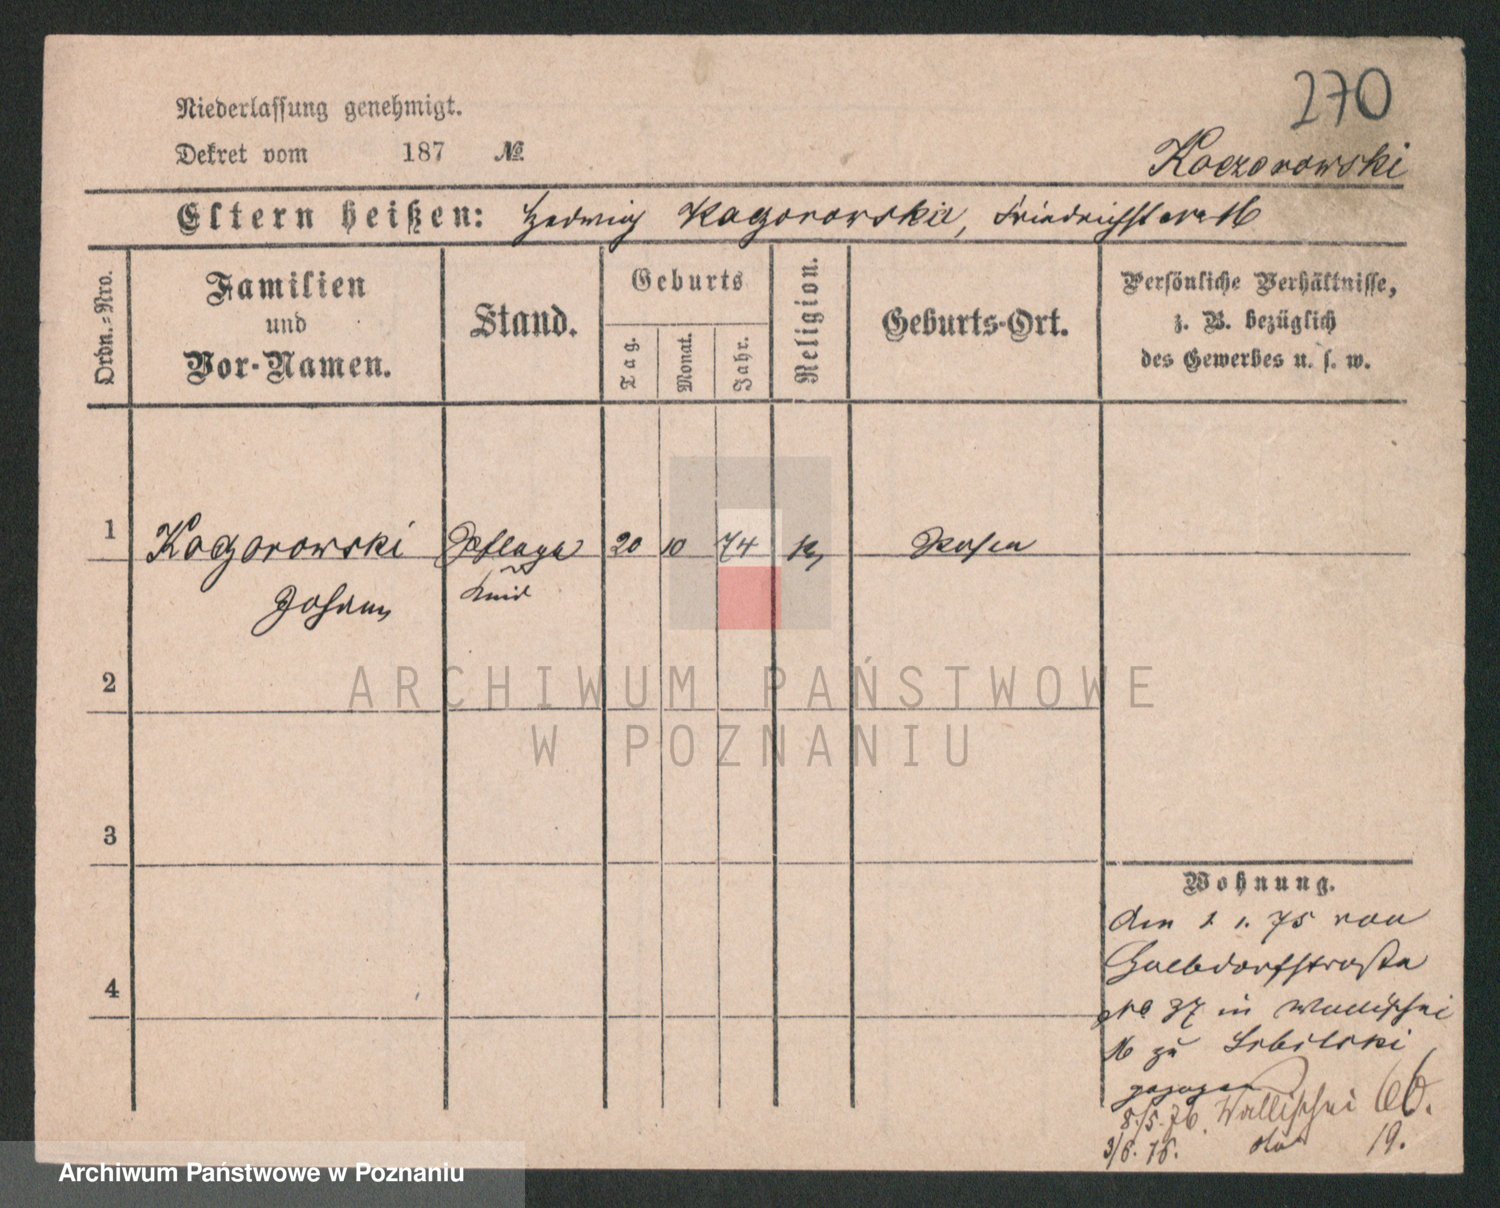 270
Niederlassung genehmigt.
Dekret vom 187 №
Koczorowski
Eltern heißen: Hedwig Kaczorowska, Friedrichstr. 16
Ordn.-Nro.
Familien
und
Vor-Namen.
Stand.
Geburts
Tag.
Monat.
Jahr.
Religion.
Geburts-Ort.
Persönliche Verhältnisse,
z. B. bezüglich
des Gewerbes u. s. w.
1 Kaczorowski Pflege 20 10 74 k Posen
Johann kind
2
3
4
Wohnung.
den 1 1. 75 von
Halbdorfstraße
No 37 in Wallischei
16 zu
gezogen
8./5. 76. Wallischei 66.
3/6. 76. 19.
ARCHIWUM PAŃSTWOWE
W POZNANIU
Archiwum Państwowe w Poznaniu